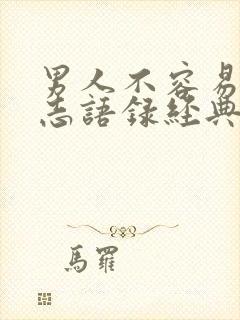 男人不容易
志語録經典
馬羅